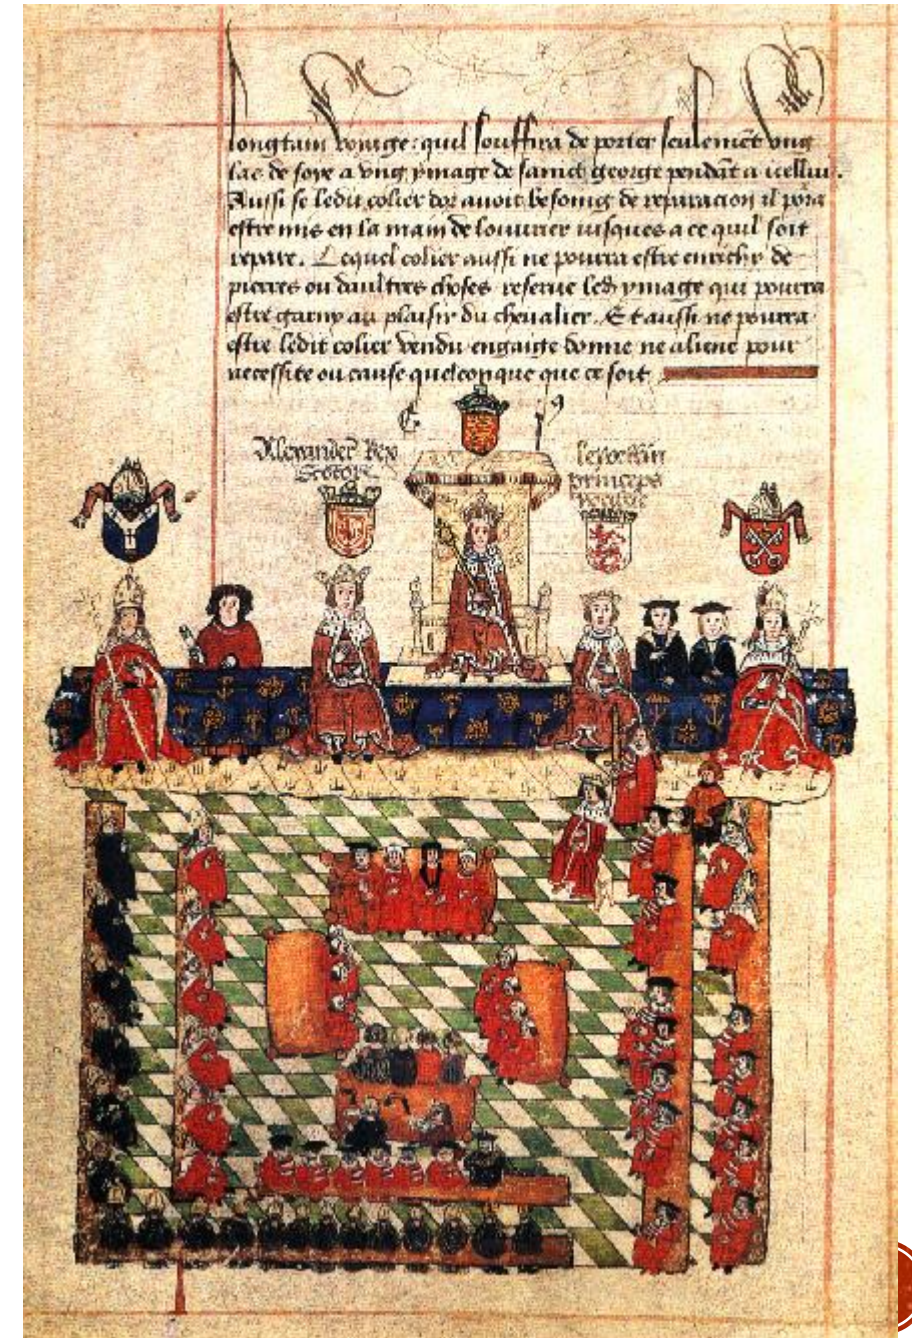 longtain voiaige: quil souffira de porter seulemēt vng
lac de soye a vng ymage de sainct george pendāt a icellui.
Aussi se ledit colier dor auoit besoing de reparacion il pora
estre mis en la main de louurier iusques a ce quil soit
repare. Lequel colier aussi ne pourra estre enrichy de
pierres ou daultres choses reserue led ymage qui pourra
estre garny au plaisir du cheualier. Et aussi ne pourra
estre ledit colier vendu engaige donne ne aliene pour
necessite ou cause quelconque que ce soit
Alexander Rex
princeps